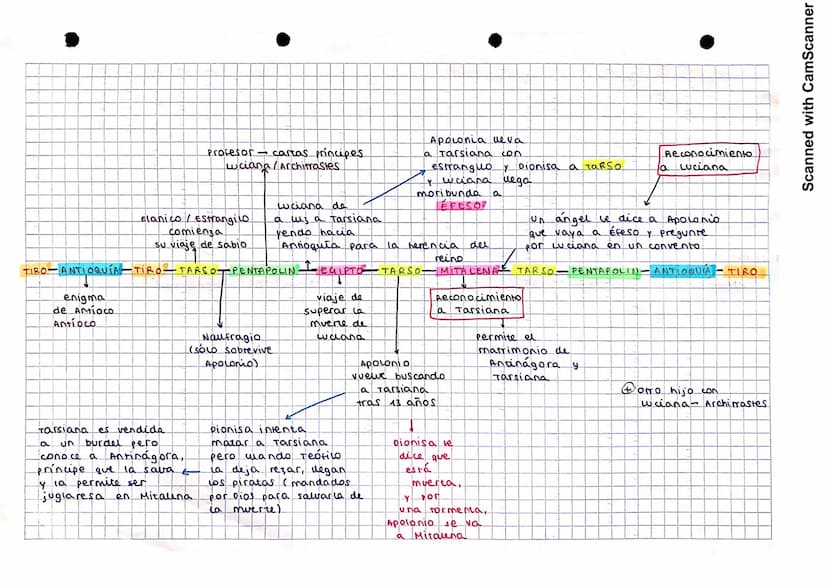 Apolonia lleva
a Tarsiana con
estrangilo y Dionisa a TARSO
y Luciana llega
moribunda a
ÉFESO
Reconocimiento
a Luciana
Profesor → cartas príncipes
Luciana/Architrastes
Luciana da
a luz a Tarsiana
yendo hacia
Antioquía para la herencia del
reino
Elanico / Estrangilo
comienza
su viaje de sabio
Un ángel le dice a Apolonio
que vaya a Éfeso y pregunte
por Luciana en un convento
TIRO - ANTIOQUÍA - TIRO - TARSO - PENTAPOLÍN - EGIPTO - TARSO - MITALENA - TARSO - PENTAPOLÍN - ANTIOQUÍA - TIRO
enigma
de Antíoco
Antíoco
Naufragio
(sólo sobrevive
Apolonio)
viaje de
superar la
muerte de
Luciana
Reconocimiento
a Tarsiana
permite el
matrimonio de
Antinágora y
Tarsiana
Apolonio
vuelve buscando
a Tarsiana
tras 13 años
+ otro hijo con
Luciana - Architrastes
Tarsiana es vendida
a un burdel pero
conoce a Antinágora,
príncipe que la salva
y la permite ser
juglaresa en Mitalena
Dionisa intenta
matar a Tarsiana
pero cuando Teófilo
la deja rezar, llegan
los piratas (mandados
por Dios para salvarla de
la muerte)
Dionisa le
dice que
está
muerta,
y por
una tormenta,
Apolonio se va
a Mitalena
Scanned with CamScanner